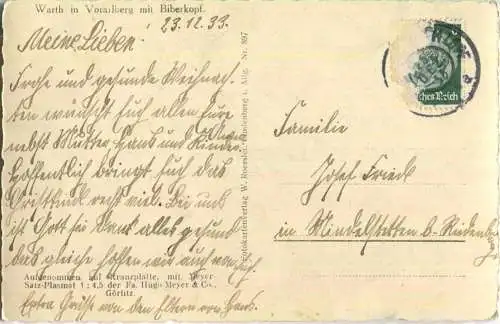 Warth in Vorarlberg mit Biberkopf.
23.12.33.
Meine Lieben!
Frohe und gesunde Weihnach-
ten wünscht Euch allen Eure
nebst Mutter, Haus und Kinder.
Hoffentlich bringt Euch das
Christkind recht viel. Bei uns
ist Gott sei Dank alles gesund
das gleiche hoffen wir auch von Euch.
Aufgenommen auf Kranzplatte, mit Meyer-
Satz-Plasmat 1 : 4,5 der Fa. Hugo Meyer & Co.,
Görlitz.
Extra Grüße von den Eltern von Hans.
Fotokartenverlag W. Roessler, Lindenberg i. Allg. Nr. 897
ches Reich
Familie
Josef Friedl
in Mindelstetten b. Riedenburg